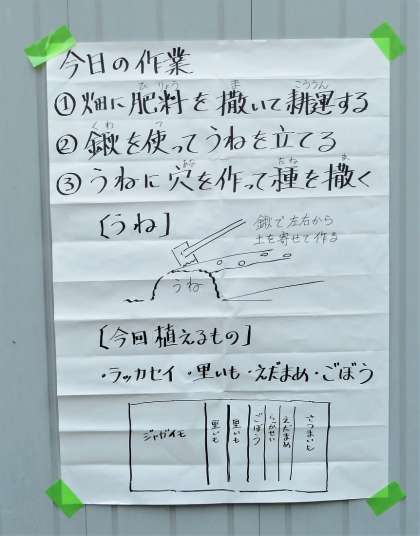 今日の作業
①畑に肥料を撒いて耕運する
②鍬を使ってうねを立てる
③うねに穴を作って種を撒く
[うね]
鍬で左右から
土を寄せて作る
うね
[今回植えるもの]
・ラッカセイ・里いも・えだまめ・ごぼう
ジャガイモ
里いも
里いも
ごぼう
らっかせい
えだまめ
さつまいも